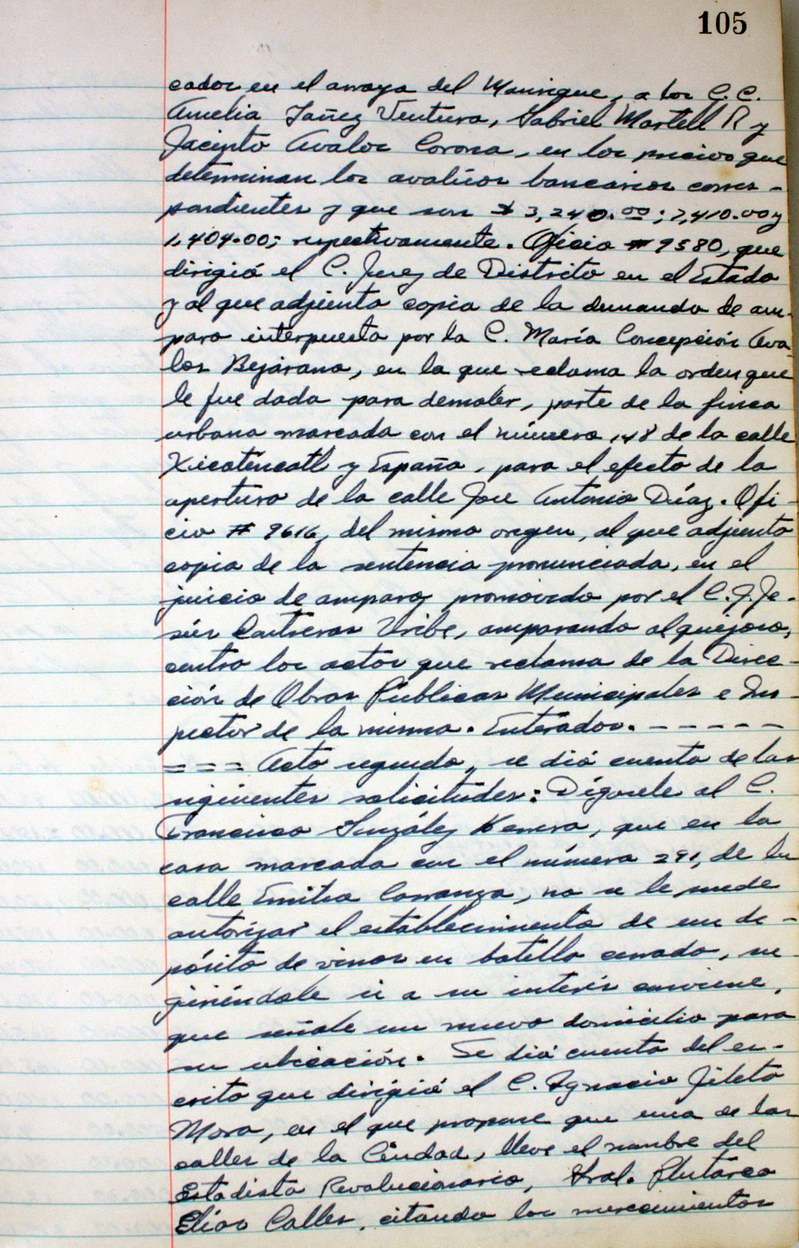 105
cador en el arroyo del Manrique, a los C.C.
Amelia Yañez Ventura, Gabriel Martell R y
Jacinto Avalos Corona, en los precios que
determinan los avalúos bancarios corres-
pondientes y que son $ 3,240.00; 2,410.00 y
1,404.00; respectivamente. Oficio # 9580, que
dirigió el C. Juez de Distrito en el Estado
y al que adjunta copia de la demanda de am-
paro interpuesta por la C. María Concepción Ava-
los Bejarano, en la que reclama la orden que
le fue dada para demoler, parte de la finca
urbana marcada con el número 148 de la calle
Xicoténcatl y España, para el efecto de la
apertura de la calle José Antonio Díaz. Ofi-
cio # 9616, del mismo origen, al que adjunta
copia de la sentencia pronunciada, en el
juicio de amparo, promovido por el C. J. Je-
sús Contreras Uribe, amparando al quejoso,
contra los actos que reclama de la Direc-
ción de Obras Públicas Municipales e Ins-
pector de la misma. Enterados. - - - - - -
= = = Acto seguido, se dió cuenta de las
siguientes solicitudes: Dígasele al C.
Francisco González Herrera, que en la
casa marcada con el número 291, de la
calle Emilio Carranza, no se le puede
autorizar el establecimiento de un de-
pósito de vinos en botella cerrada, su-
giriéndole si a su interés conviene,
que señale un nuevo domicilio para
su ubicación. Se dió cuenta del es-
crito que dirigió el C. Ignacio
Mora, en el que propone que una de las
calles de la Ciudad, lleve el nombre del
Estadista Revolucionario, Gral. Plutarco
Elías Calles, citando los merecimientos